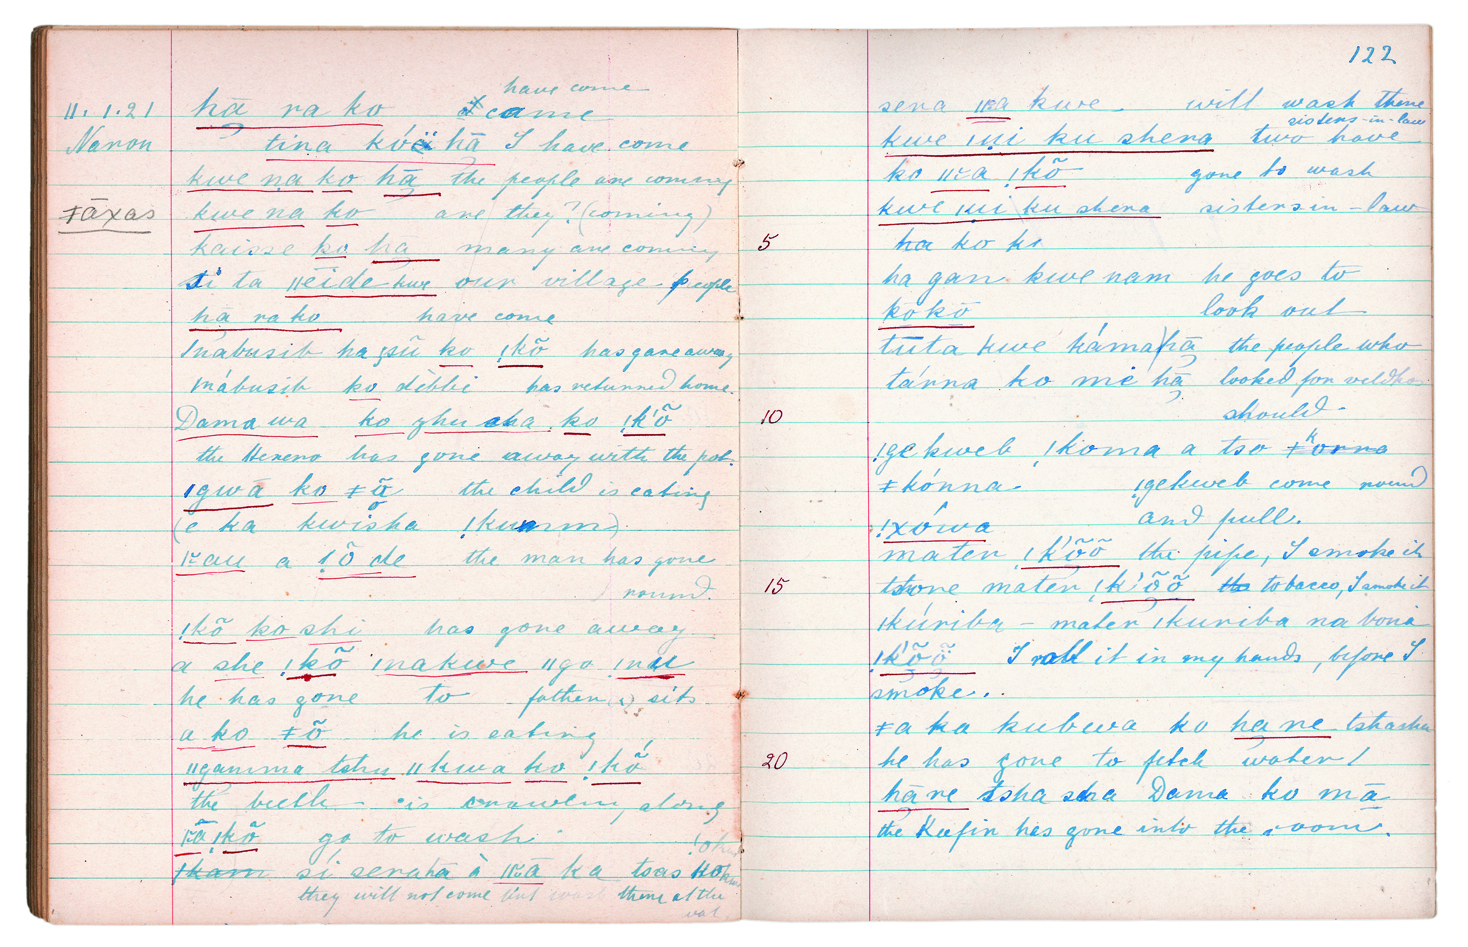 have come
11.1.21 hā ra ko came
Naron tina kóë hā I have come
kwe na ko hā the people are coming
ǂāxas kwe na ko are they? (coming)
kaisse ko hā many are coming
si ta ǁëide kwe our village people
hā ra ko have come
ko !kõ has gone away
ko dèbbi has returned home.
Dama wa ko ghu cha ko !k'õ
the Herero has gone away with the pot.
ǀgwā ko ǂõ the child is eating
(e ka kwisha !kumm)
a !õ de the man has gone
round.
!kõ ko shi has gone away
a she !kõ ǀnakwe ǁgo ǀnu
he has gone to father(s) sits
a ko ǂõ he is eating
ǁgamma tshu ǁkwa ko !kõ
the beetle is crawling along
!kõ go to wash
si sera hā à ka tsas
they will not come but wash them at the
122
sera kwe will wash there
sisters-in-law
kwe ǀui ku shera two have
ko !kõ gone to wash
kwe ǀui ku shera sisters-in-law
5 ha ko ko
ha gan kwe nam he goes to
kōkō look out
tūta kwe káma hā the people who
tánna ko mē hā looked for veldkos
10 should
!gekweb !koma a tso
ǂkónna. !gekweb come round
!xówa and pull.
mater !k'õõ the pipe, I smoke it
15 mater !k'õõ tobacco, I smoke it
ǀkúriba – mater ǀkuriba na bona
!k'õõ I roll it in my hands, before I
smoke..
ǂa ka kubwa ko hā ne tshasha
20 he has gone to fetch water/
hāre tsha sha Dama ko mā
the Kaffir has gone into the room.